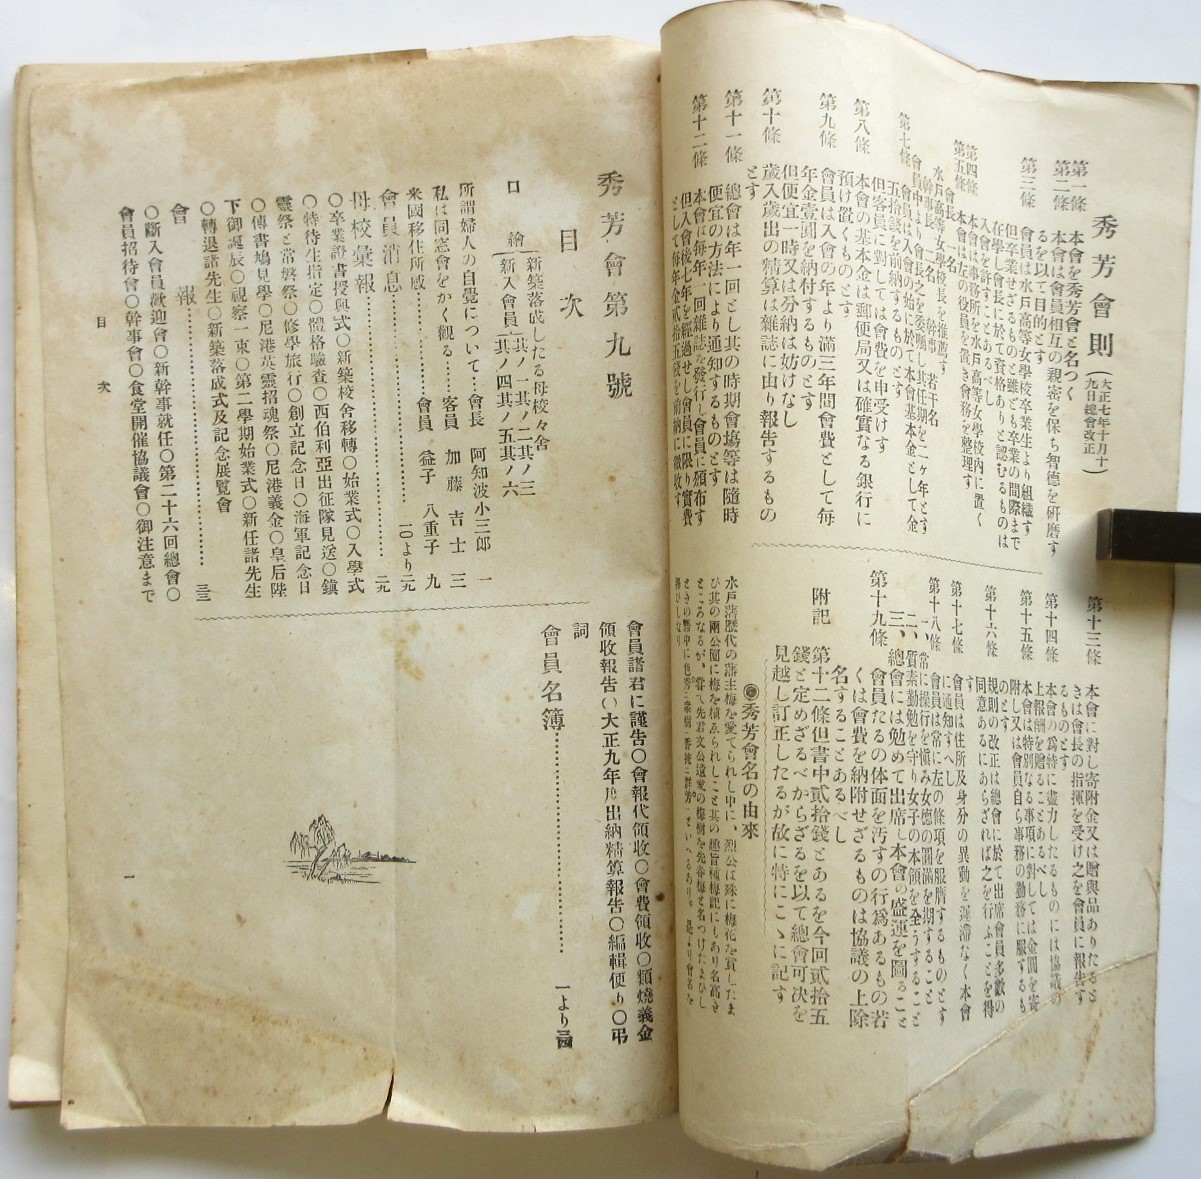 秀芳會則（大正七年十月十九日總會改正）
第一條　本會を秀芳會と名つく
第二條　本會は會員相互の親密を保ち智德を硏磨す
るを以て目的とす
第三條　會員は水戸高等女學校卒業生より組織す
但卒業せざるものと雖ども卒業の間際まで
在學し會長に於て資格ありと認むるものは
入會を許すことあるべし
第四條　本會は事務所を水戸高等女學校内に置く
第五條　本會は左の役員を置き會務を整理す
會長　一名　幹事　若干名
幹事長　一名
水戸高等女學校長を推薦す
會員中より會長之を委囑し其任期を二ケ年とす
第七條　會員は入會の始に於て本會基本金として金
五拾錢を前納するものとす
但客員に對しては會費を申受けす
第八條　本會の基本金は郵便局又は確實なる銀行に
預け置くものとす
第九條　會員は入會の年より滿三年間會費として毎
年金壹圓を納付するものとす
但便宜一時又は分納は妨けなし
第十條　歲入歲出の精算は雜誌に由り報告するもの
とす
第十一條　總會は年一回とし其の時期會場等は隨時
便宜の方法により通知するものとす
第十二條　本會は毎年一回雜誌を發行し會員に頒布す
但入會後七年を經過せし會員に限り實費
として毎年金貳拾五錢を前納に徵收す
第十三條　本會に對し寄附金又は贈與品ありたるとき
きは會長の指揮を受け之を會員に報告す
るものとす
第十四條　本會の爲特に盡力したるものには協議の
上報酬を贈ることあるべし
第十五條　本會は特別なる事項に對しては金圓を寄
附し又は會員自ら事務の勤務に服するも
のとす
第十六條　規則の改正は總會に於て出席會員多數の
同意あるにあらざれば之を行ふことを得
す
第十七條　會員は住所及身分の異動を遲滯なく本會
に通知すへし
第十八條　會員は常に左の條項を服膺するものとす
一、常に操行を愼み女德の圓滿を期すること
二、質素勤勉を守り女子の本領を全うすること
三、總會には勉めて出席し本會の盛運を圖ること
第十九條　會員たるの体面を汚すの行爲あるもの若
くは會費を納附せざるものは協議の上除
名することあるべし
附記　第十二條但書中貳拾錢とあるを今回貳拾五
錢と定めざるべからざるを以て總會可決を
見越し訂正したるが故に特にこゝに記す
◉秀芳會名の由來
水戸藩歷代の藩主梅を愛てられし中に、烈公は殊に梅花を賞したま
ひ其の兩公園に梅を植ゑられしこと其の趣旨種梅記にもあり名高き
ところなるが、嘗て先君文公遺愛の梅樹を先春梅と名つけたまひし
秀芳會第九號
目次
口繪（新築落成したる母校々舍　其ノ一其ノ二其ノ三
（新入會員）其ノ四其ノ五其ノ六
所謂婦人の自覺について……會長　阿知波小三郎　一
私は同窓會をかく觀る……客員　加藤吉士　三
米國移住所感……會員　益子八重子　九
會員消息……一〇より二九
母校彙報……二九
〇卒業證書授與式〇新築校舍移轉〇始業式〇入學式
〇特待生指定〇體格驗查〇西伯利亞出征隊見送〇鎭
靈祭と常磐祭〇修學旅行〇創立記念日〇海軍記念日
〇傳書鳩見學〇尼港英靈招魂祭〇尼港義金〇皇后陛
下御誕辰〇視察一束〇第二學期始業式〇新任諸先生
〇轉退諸先生〇新築落成式及記念展覽會
會報……三三
〇斷入會員歡迎會〇新幹事就任〇第二十六回總會〇
會員招待會〇幹事會〇食堂開催協議會〇御注意まで
會員諸君に謹告〇會報代領收〇會費領收〇類燒義金
領收報告〇大正九年度出納精算報告〇編輯便り〇弔
詞
會員名簿……一より四四
目次
一